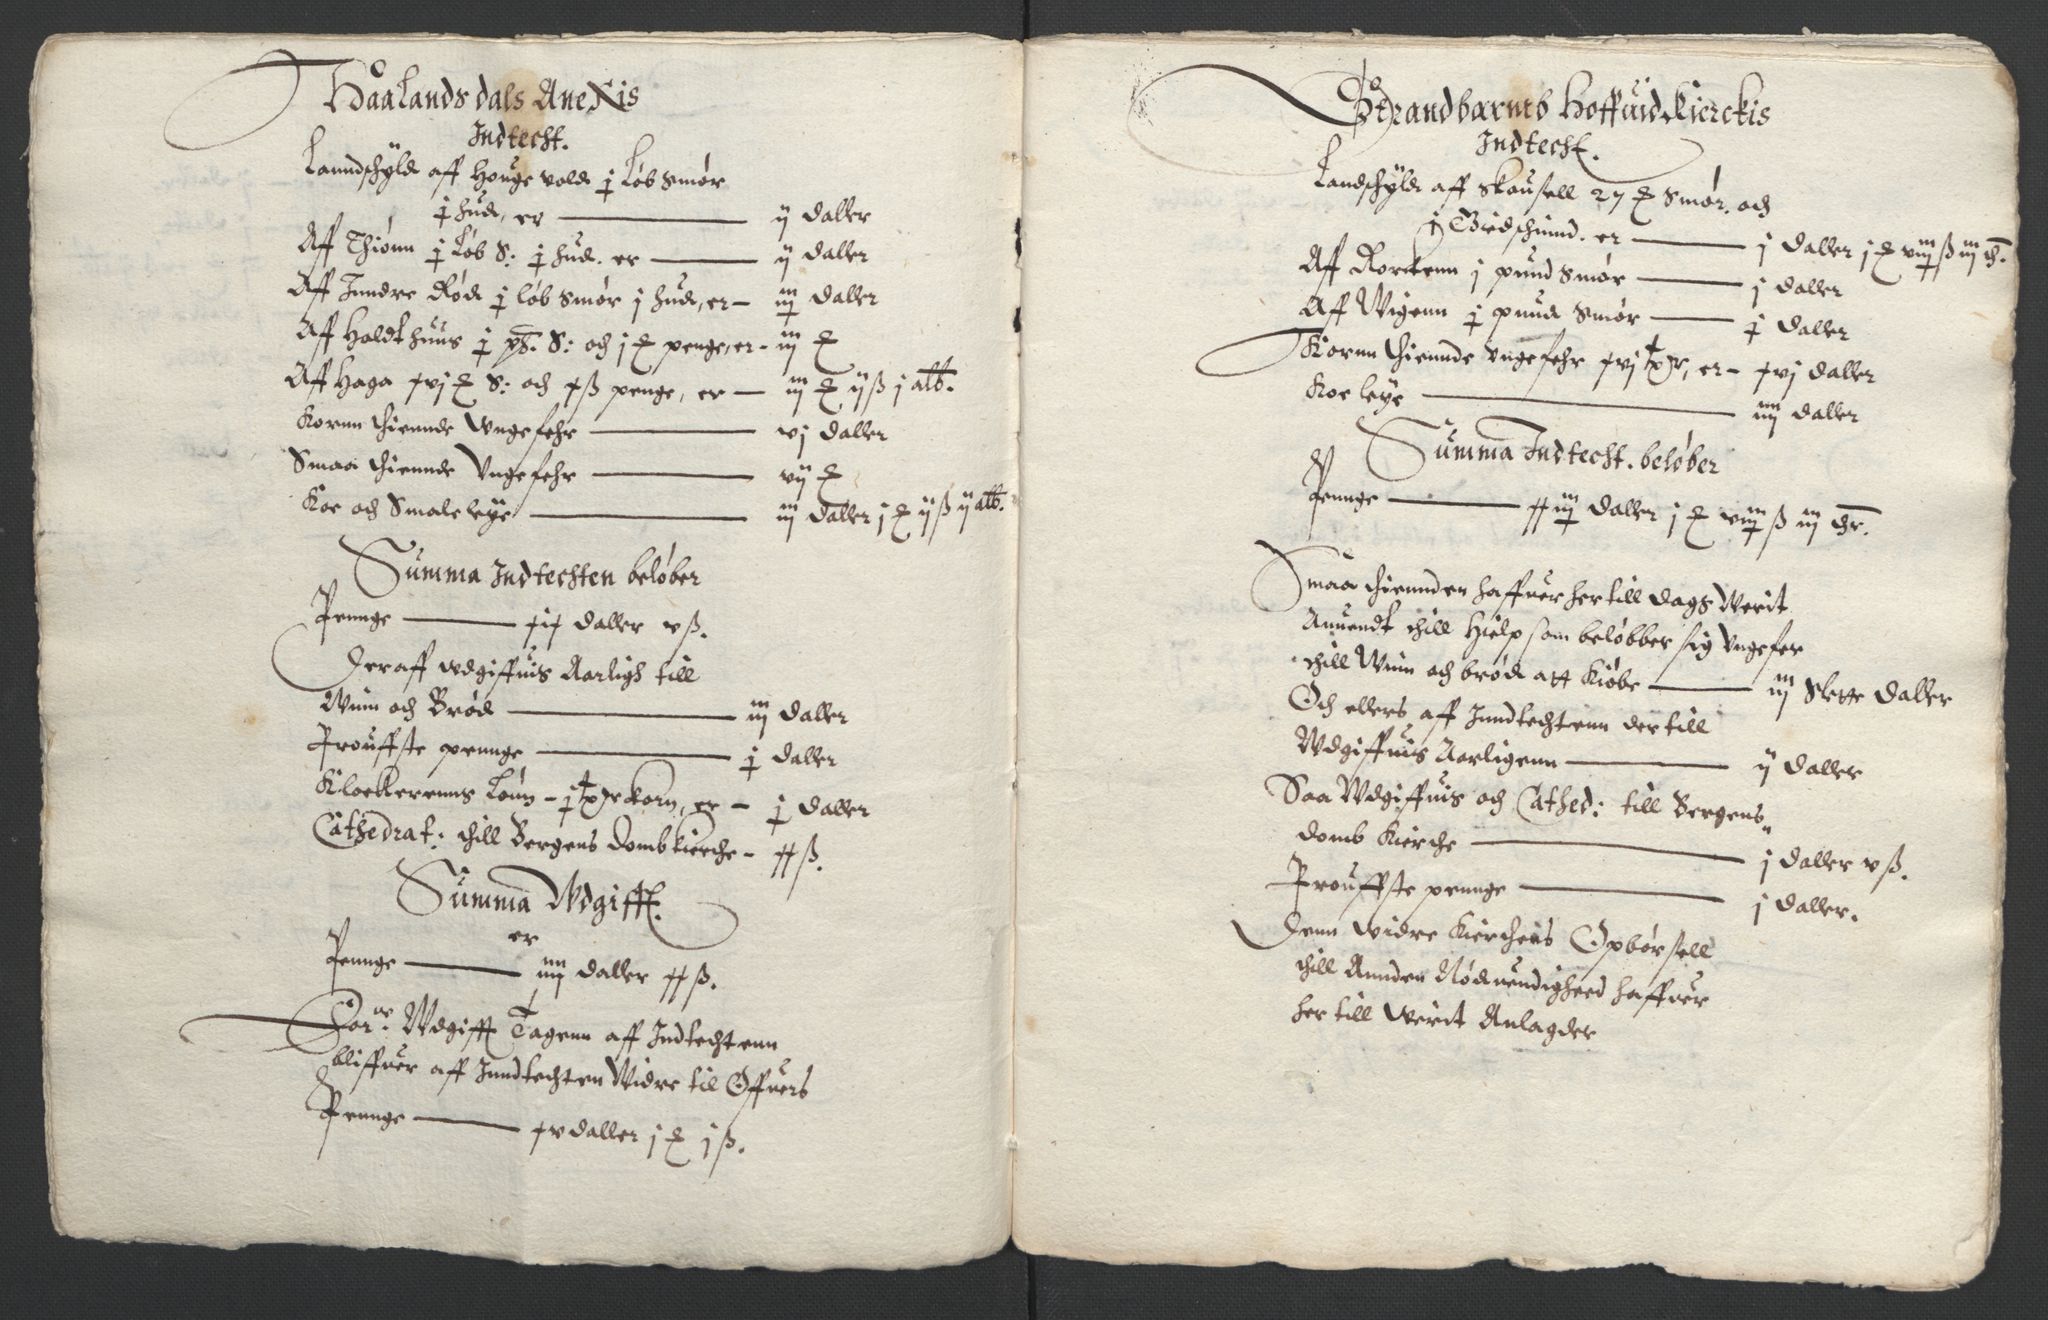 Haalands dals Anexis
Indtecht.
Lanndschyld aff Hougevold j Løb Smør
j hud, er ——— ij daller
Aff Thiønn j Løb S: j hud. er ——— ij daller
Aff Inndre Rød j løb Smør j hud, er – iij daller
Aff Holdthuus j pd. S: och j mk penge, er – iij mk
Aff Haga xvj mk S: och x ß penge, er – iij mk ij ß j alb.
Kornn thiennde Vngefehr ——— vj daller
Smaa thiennde Vngefehr ——— vij mk
Koe och Smale leye ——— iij daller j mk ij ß ij alb.
Summa Indtechten beløber
Pennge ——— xix daller v ß.
Deraff vdgiffuis Aarligh till
Wiin och Brød ——— iij daller
Prouffste pennge ——— j daller
Klockerenns Løun – j tpe korn, er – j daller
Cathedrat: thill Bergens Domb kierche – xx ß.
Summa Wdgifft.
er
Pennge ——— iiij daller xx ß.
For.ne Wdgifft Tagenn aff Indtechtenn
bliffuer aff Inndtechten Widre til Offuers
Pennge ——— xv daller j mk j ß.
Strandbarmb Hoffuid Kierckis
Indtecht.
Landschyld aff Skoufell 27 mk Smør. och
j Giedschind. er ——— j daller j mk viij ß iij d.
Aff Rorckenn j pund Smør ——— j daller
Aff Wigenn j pund Smør ——— j daller
Kornn thiennde Vngefehr xvj tpr, er – xvj daller
Koe leye ——— iiij daller
Summa Indtecht. beløber
Pennge ——— xxiij daller j mk viij ß iij d.
Smaa thiennden haffuer hertill dags Werit
Anuendt thill Hielp som beløbber sig Vngefer
thill Wiin och brød att Kiøbe ——— iij Slette Daller
Och ellers aff Inndtechtenn der till
Wdgiffuis Aarligenn ——— ij daller
Saa Wdgiffuis och Cathed: till Bergens
domb Kierche ——— j daller v ß.
Prouffste pennge ——— j daller.
Denn widre Kierchens Opbørsell
thill Annden Nødvendigheed haffuer
her till Werit Anlagder